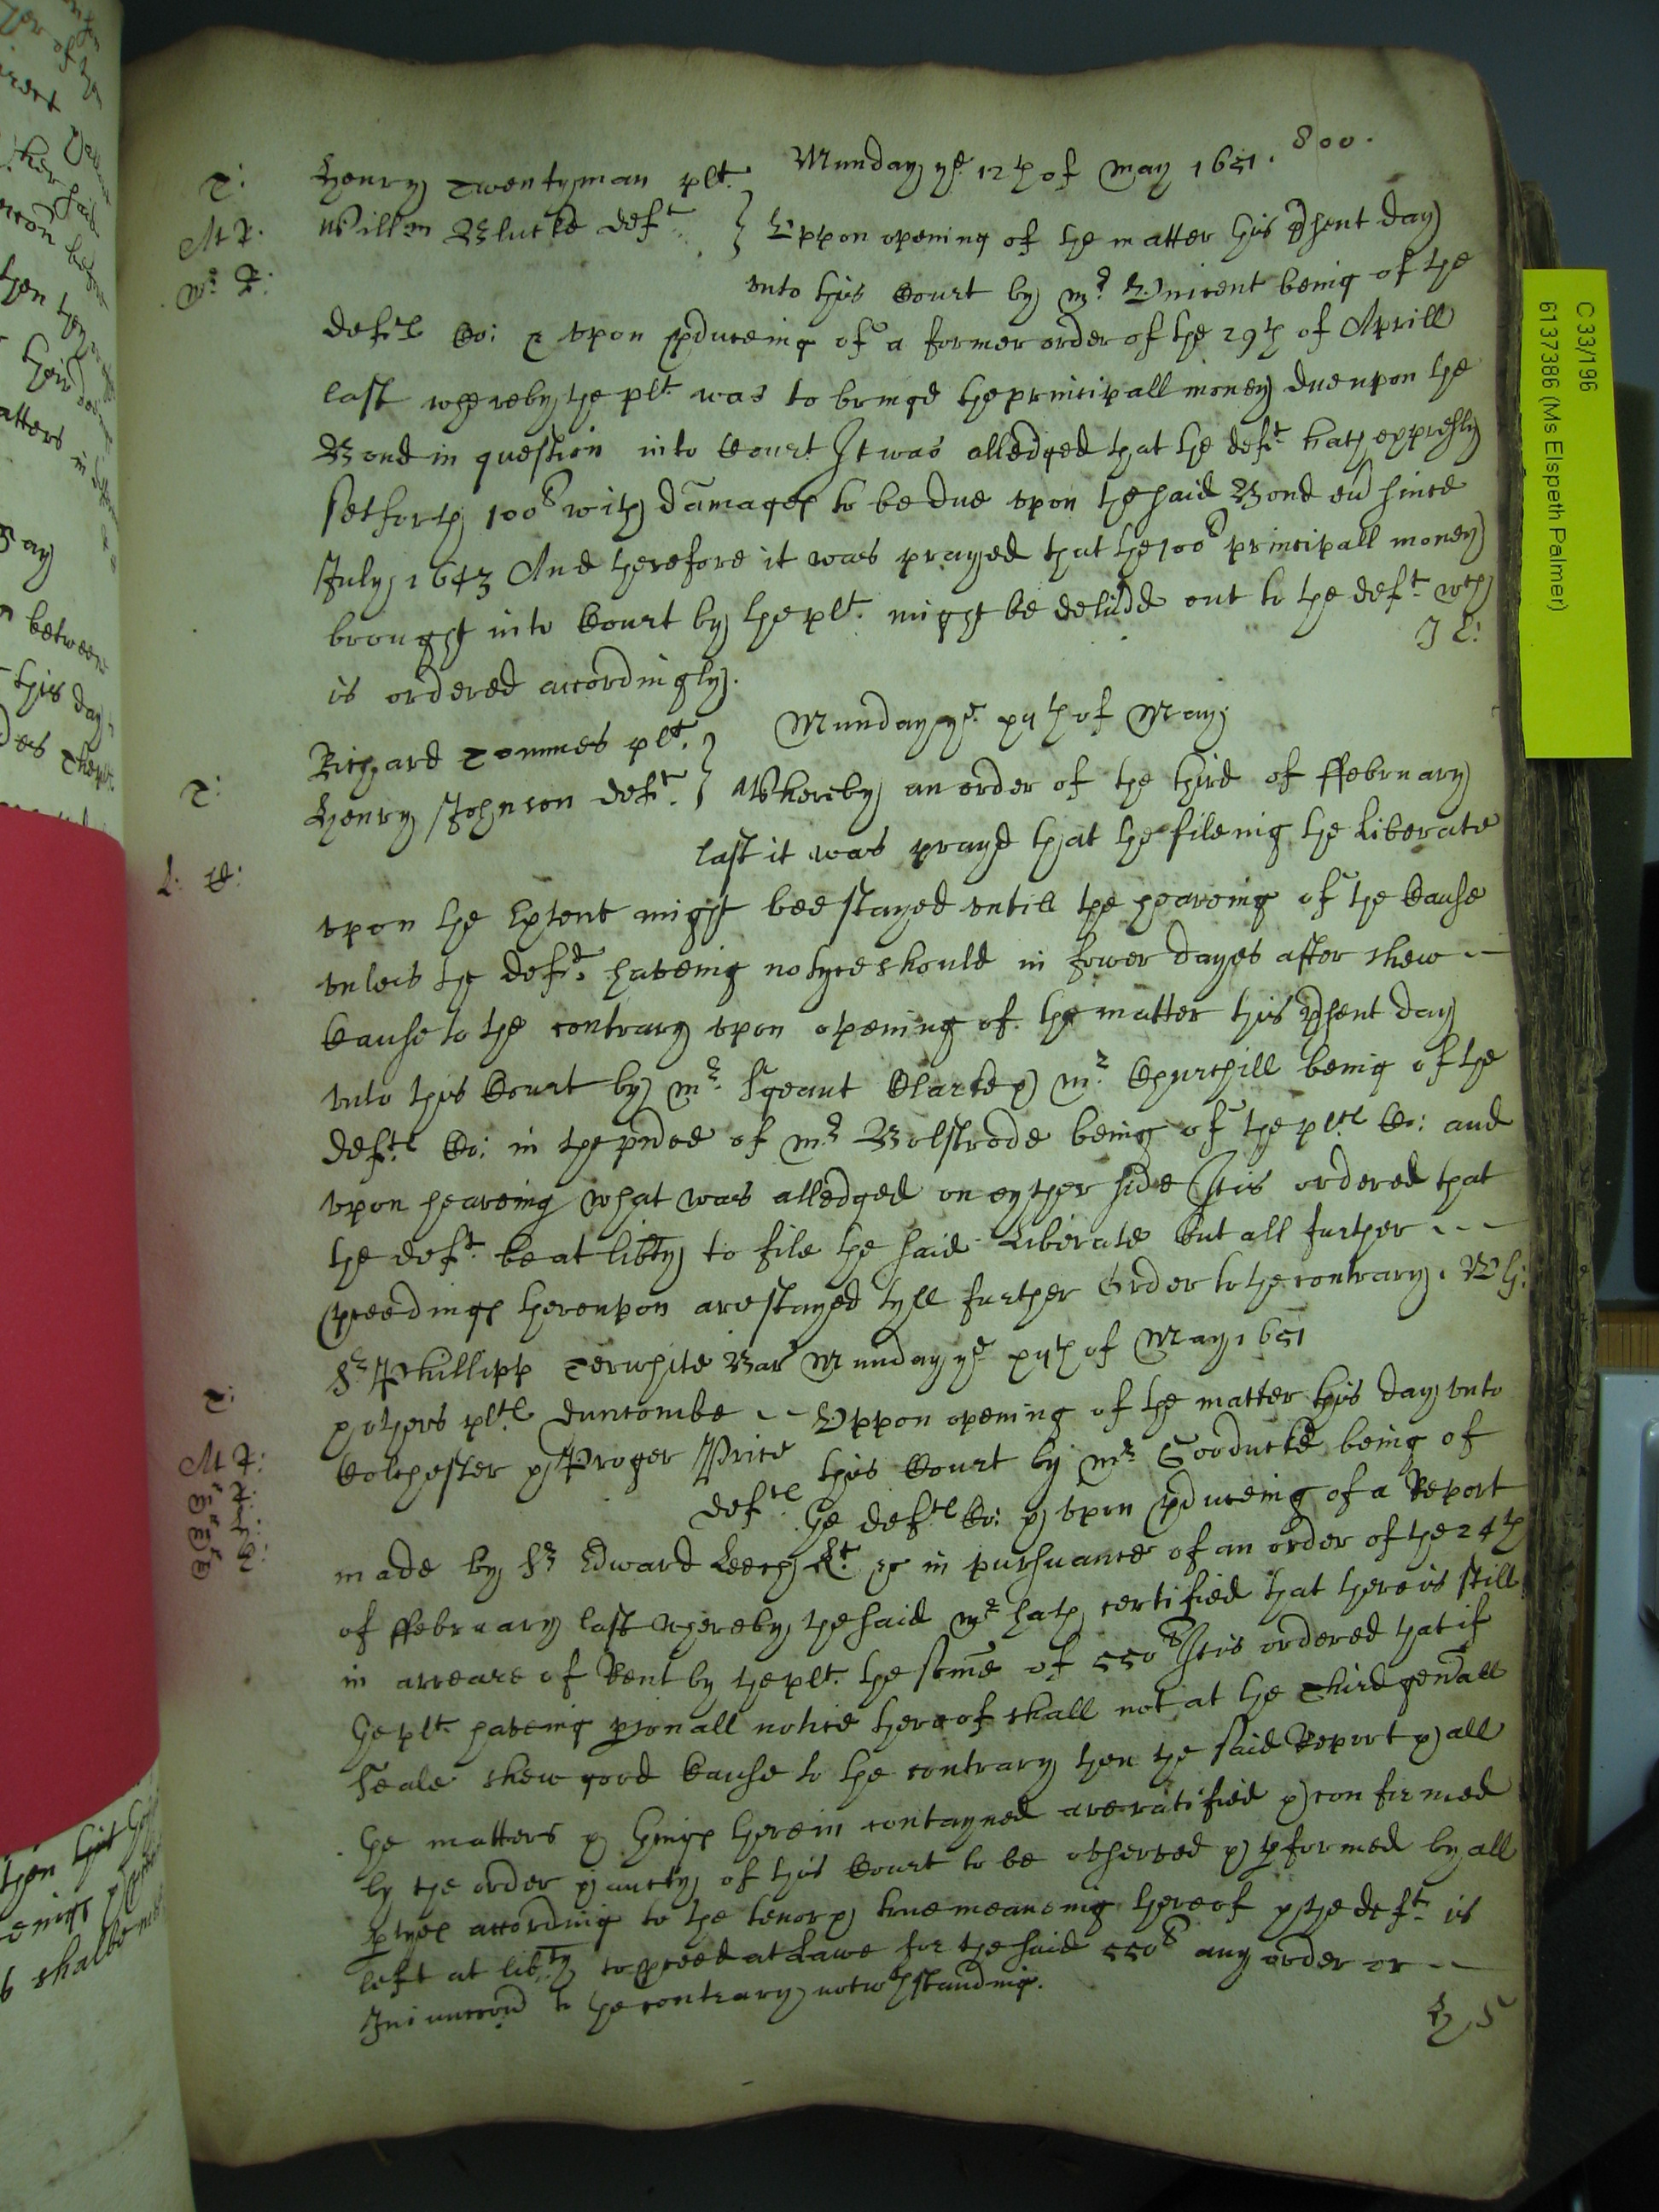 800.
Munday ye 12th of May 1651.
T:
Henry Twentyman plt.
Willm Blucke deft
Uppon opening of the matter this psent day
unto this Court by mr Vincent being of the
defts Co: & upon pduceing of a former order of the 29th of Aprill
last whereby the plt. was to bringe the principall money due upon the
Bond in question into Court It was alledged that the deft hath expressly
set forth 100l with damages to be due upon the said Bond ev since
July 1643 And therefore it was prayed that the 100l principall money
brought into Court by the plt. might be delivd out to the deft wch
is ordered accordingly.
J L:
Munday ye xijth of May
T:
Richard Tommes plt.
Henry Johnson deft.
Whereby an order of the third of ffebruary
last it was prayd that the fileing the Liberate
upon the Extent might bee stayed untill the heareing of the Cause
unles the deft. haveing notyce should in fower dayes after shew --
Cause to the contrary upon opening of the matter this psent day
unto this Court by mr Sgeant Clarke & mr Churchill being of the
defts Co: in the pnce of mr Bolstrode being of the plts Co: and
upon heareing what was alledged on eyther side It is ordered that
the deft. be at libty to file the said Liberate but all further - - -
pceedings thereupon are stayed tyll further Order to the contrary. Wh:
Sr Phillipp Terwhite Bart Munday ye xijth of May 1651
T:
& others plts Duncombe -- Uppon opening of the matter this day unto
Colchester & Proger Price this Court by mr Gooducke being of
defts the defts Co: & upon pduceing of a Report
made by Sr Edward Leech Kt &c in pursuance of an order of the 24th
of ffebruary last whereby the said mr hath certified that there is still
in arreare of Rent by the plt. the some of 550l It is ordered that if
the plt. haveing psonall notice thereof shall not at the Third genall
Seale shew good Cause to the contrary then the said Report & all
the matters & things therein contayned are ratified & confirmed
by the order & aucty of this Court to be observed & pformed by all
ptyes according to the tenor & true meaneing thereof & the deft. is
left at libty to pceed at Lawe for the said 550l any order or --
Iniunccon to the contrary notwthstanding.
C 33/196
6137386 (Ms Elspeth Palmer)
ray
between
this day
shalbe